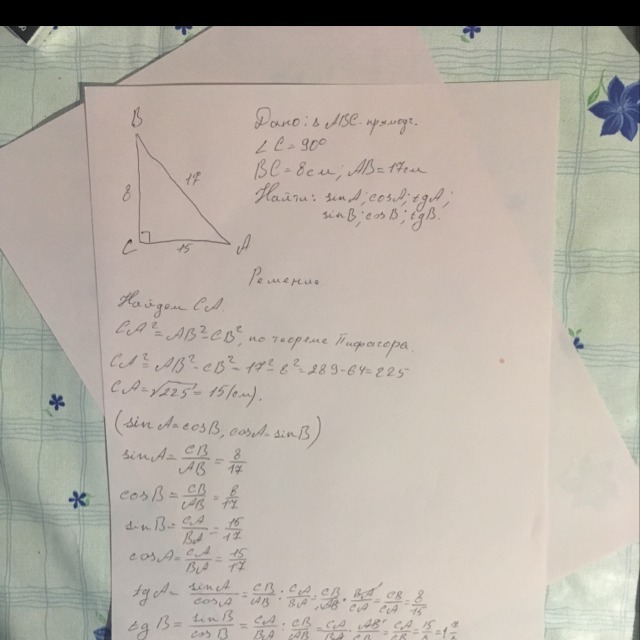 B
Дано: Δ ABC - прямоуг.
∠C=90°
BC=8см; AB=17см
Найти: sinA; cosA; tgA;
sinB; cosB; tgB.
8
17
C
15
A
Решение
Найдем CA.
CA²=AB²-CB², по теореме Пифагора.
CA²=AB²-CB²=17²-8²=289-64=225
CA=√225=15(см).
(sinA=cosB, cosA=sinB)
sinA=CB/AB=8/17
cosB=CB/AB=8/17
sinB=CA/BA=15/17
cosA=CA/BA=15/17
tgA=sinA/cosA=CB/AB:CA/BA=CB/AB·BA/CA=CB/CA=8/15
tgB=sinB/cosB=CA/BA:CB/AB=CA/BA·AB/CB=CA/CB=15/8